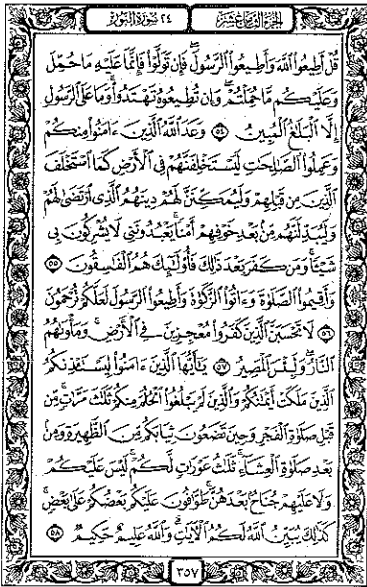 الجزء الثامن عشر ٢٤ سورة النور
قُلْ أَطِيعُوا۟ ٱللَّهَ وَأَطِيعُوا۟ ٱلرَّسُولَ ۖ فَإِن تَوَلَّوْا۟ فَإِنَّمَا عَلَيْهِ مَا حُمِّلَ
وَعَلَيْكُم مَّا حُمِّلْتُمْ ۖ وَإِن تُطِيعُوهُ تَهْتَدُوا۟ ۚ وَمَا عَلَى ٱلرَّسُولِ
إِلَّا ٱلْبَلَٰغُ ٱلْمُبِينُ ٥٤ وَعَدَ ٱللَّهُ ٱلَّذِينَ ءَامَنُوا۟ مِنكُمْ
وَعَمِلُوا۟ ٱلصَّٰلِحَٰتِ لَيَسْتَخْلِفَنَّهُمْ فِى ٱلْأَرْضِ كَمَا ٱسْتَخْلَفَ
ٱلَّذِينَ مِن قَبْلِهِمْ وَلَيُمَكِّنَنَّ لَهُمْ دِينَهُمُ ٱلَّذِى ٱرْتَضَىٰ لَهُمْ
وَلَيُبَدِّلَنَّهُم مِّنۢ بَعْدِ خَوْفِهِمْ أَمْنًا ۚ يَعْبُدُونَنِى لَا يُشْرِكُونَ بِى
شَيْـًٔا ۚ وَمَن كَفَرَ بَعْدَ ذَٰلِكَ فَأُو۟لَٰٓئِكَ هُمُ ٱلْفَٰسِقُونَ ٥٥
وَأَقِيمُوا۟ ٱلصَّلَوٰةَ وَءَاتُوا۟ ٱلزَّكَوٰةَ وَأَطِيعُوا۟ ٱلرَّسُولَ لَعَلَّكُمْ تُرْحَمُونَ
٥٦ لَا تَحْسَبَنَّ ٱلَّذِينَ كَفَرُوا۟ مُعْجِزِينَ فِى ٱلْأَرْضِ ۚ وَمَأْوَىٰهُمُ
ٱلنَّارُ ۖ وَلَبِئْسَ ٱلْمَصِيرُ ٥٧ يَٰٓأَيُّهَا ٱلَّذِينَ ءَامَنُوا۟ لِيَسْتَـْٔذِنكُمُ
ٱلَّذِينَ مَلَكَتْ أَيْمَٰنُكُمْ وَٱلَّذِينَ لَمْ يَبْلُغُوا۟ ٱلْحُلُمَ مِنكُمْ ثَلَٰثَ مَرَّٰتٍ ۚ مِّن
قَبْلِ صَلَوٰةِ ٱلْفَجْرِ وَحِينَ تَضَعُونَ ثِيَابَكُم مِّنَ ٱلظَّهِيرَةِ وَمِنۢ
بَعْدِ صَلَوٰةِ ٱلْعِشَآءِ ۚ ثَلَٰثُ عَوْرَٰتٍ لَّكُمْ ۚ لَيْسَ عَلَيْكُمْ
وَلَا عَلَيْهِمْ جُنَاحٌۢ بَعْدَهُنَّ ۚ طَوَّٰفُونَ عَلَيْكُم بَعْضُكُمْ عَلَىٰ بَعْضٍ ۚ
كَذَٰلِكَ يُبَيِّنُ ٱللَّهُ لَكُمُ ٱلْءَايَٰتِ ۗ وَٱللَّهُ عَلِيمٌ حَكِيمٌ ٥٨
٣٥٧